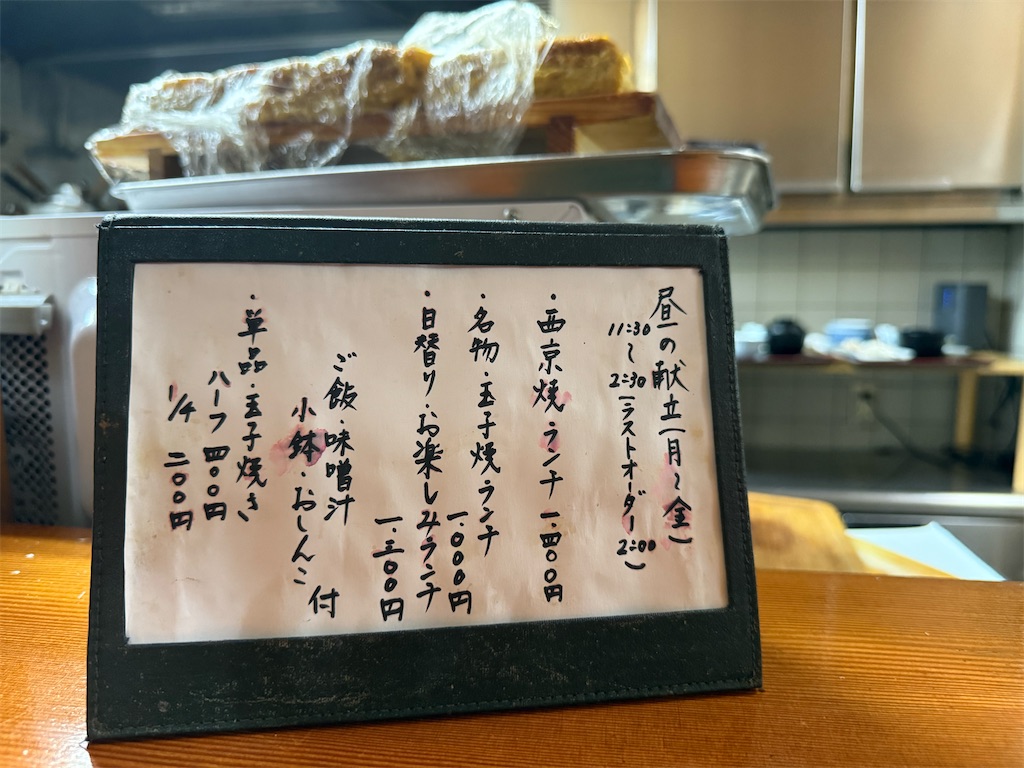 昼の献立(月〜金)
11:30〜2:30(ラストオーダー2:00)
・西京焼・ランチ 一.四〇〇円
・名物・玉子焼・ランチ
一.〇〇〇円
・日替り・お楽しみランチ
一.三〇〇円
ご飯・味噌汁
小鉢・おしんこ 付
・単品・玉子焼き、
ハーフ 四〇〇円
1/4 二〇〇円